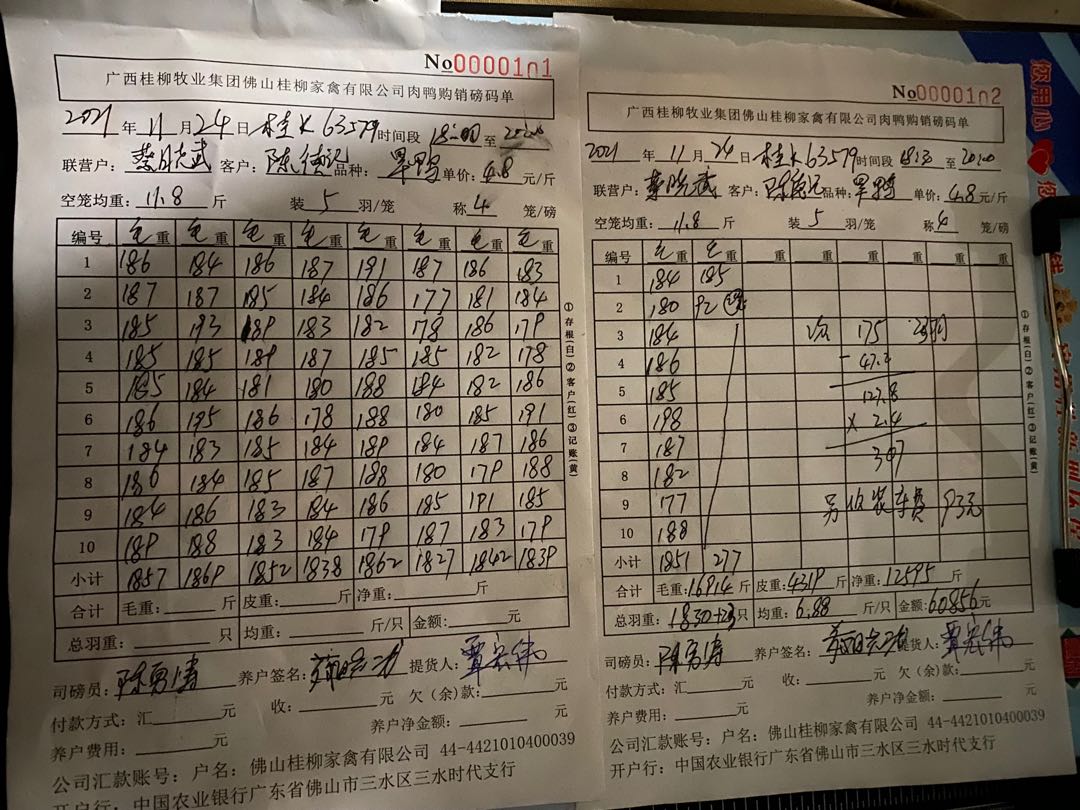 No0000101
广西桂柳牧业集团佛山桂柳家禽有限公司肉鸭购销磅码单
2021年11月24日 桂K63579 时间段 18:00 至
联营户: 蔡晓武 客户: 陈德记 品种: 旱鸭 单价: 4.8 元/斤
空笼均重: 11.8 斤 装 5 羽/笼 称 4 笼/磅
编号 毛重 毛重 毛重 毛重 毛重 毛重 毛重 毛重
1 186 184 186 187 191 187 186 183
2 187 187 185 184 186 177 181 184
3 185 193 189 183 182 178 186 179
4 185 185 189 187 185 185 182 178
5 185 184 181 180 188 184 182 186
6 186 195 186 178 188 180 185 191
7 184 183 185 184 189 184 187 186
8 186 184 185 187 188 180 179 188
9 184 186 183 184 186 185 191 185
10 189 188 183 184 179 187 183 179
小计 1857 1869 1852 1838 1862 1827 1842 1839
合计 毛重: 斤 皮重: 斤 净重: 斤
总羽重: 只 均重: 斤/只 金额: 元
司磅员: 陈勇涛 养户签名: 提货人: 覃宏伟
付款方式: 汇 元 收: 元 欠(余)款: 元
养户费用: 元 养户净金额: 元
公司汇款账号: 户名: 佛山桂柳家禽有限公司 44-4421010400039
开户行: 中国农业银行广东省佛山市三水区三水时代支行
①存根(白)②客户(红)③记账(黄)
No0000102
广西桂柳牧业集团佛山桂柳家禽有限公司肉鸭购销磅码单
2021年11月24日 桂K63579 时间段 18:30 至 20:00
联营户: 蔡晓武 客户: 陈德记 品种: 旱鸭 单价: 4.8 元/斤
空笼均重: 11.8 斤 装 5 羽/笼 称 4 笼/磅
编号 毛重 毛重 重 重 重 重 重
1 184 185
2 180 92
3 184 175
4 186 - 47.2
5 185 127.8
6 198 × 2.4
7 187 307
8 182
9 177 另收装车费 93元
10 188
小计 1851 277
合计 毛重: 16914 斤 皮重: 4319 斤 净重: 12595 斤
总羽重: 1830+23 只 均重: 6.88 斤/只 金额: 60856 元
司磅员: 陈勇涛 养户签名: 提货人: 覃宏伟
付款方式: 汇 元 收: 元 欠(余)款: 元
养户费用: 元 养户净金额: 元
公司汇款账号: 户名: 佛山桂柳家禽有限公司 44-4421010400039
开户行: 中国农业银行广东省佛山市三水区三水时代支行
①存根(白)②客户(红)③记账(黄)
您用心